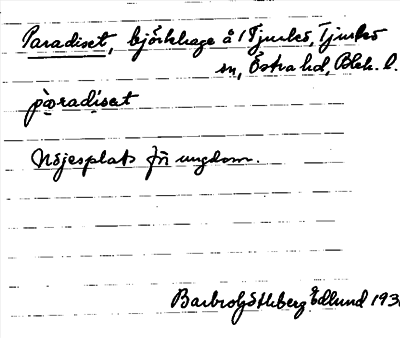 Paradiset, björkhage å 1 Tjurkö, Tjurkö
sn, Östra hd, Blek. l.
pàradiset
Nöjesplats för ungdom.
Barbro Götlberg Edlund 193